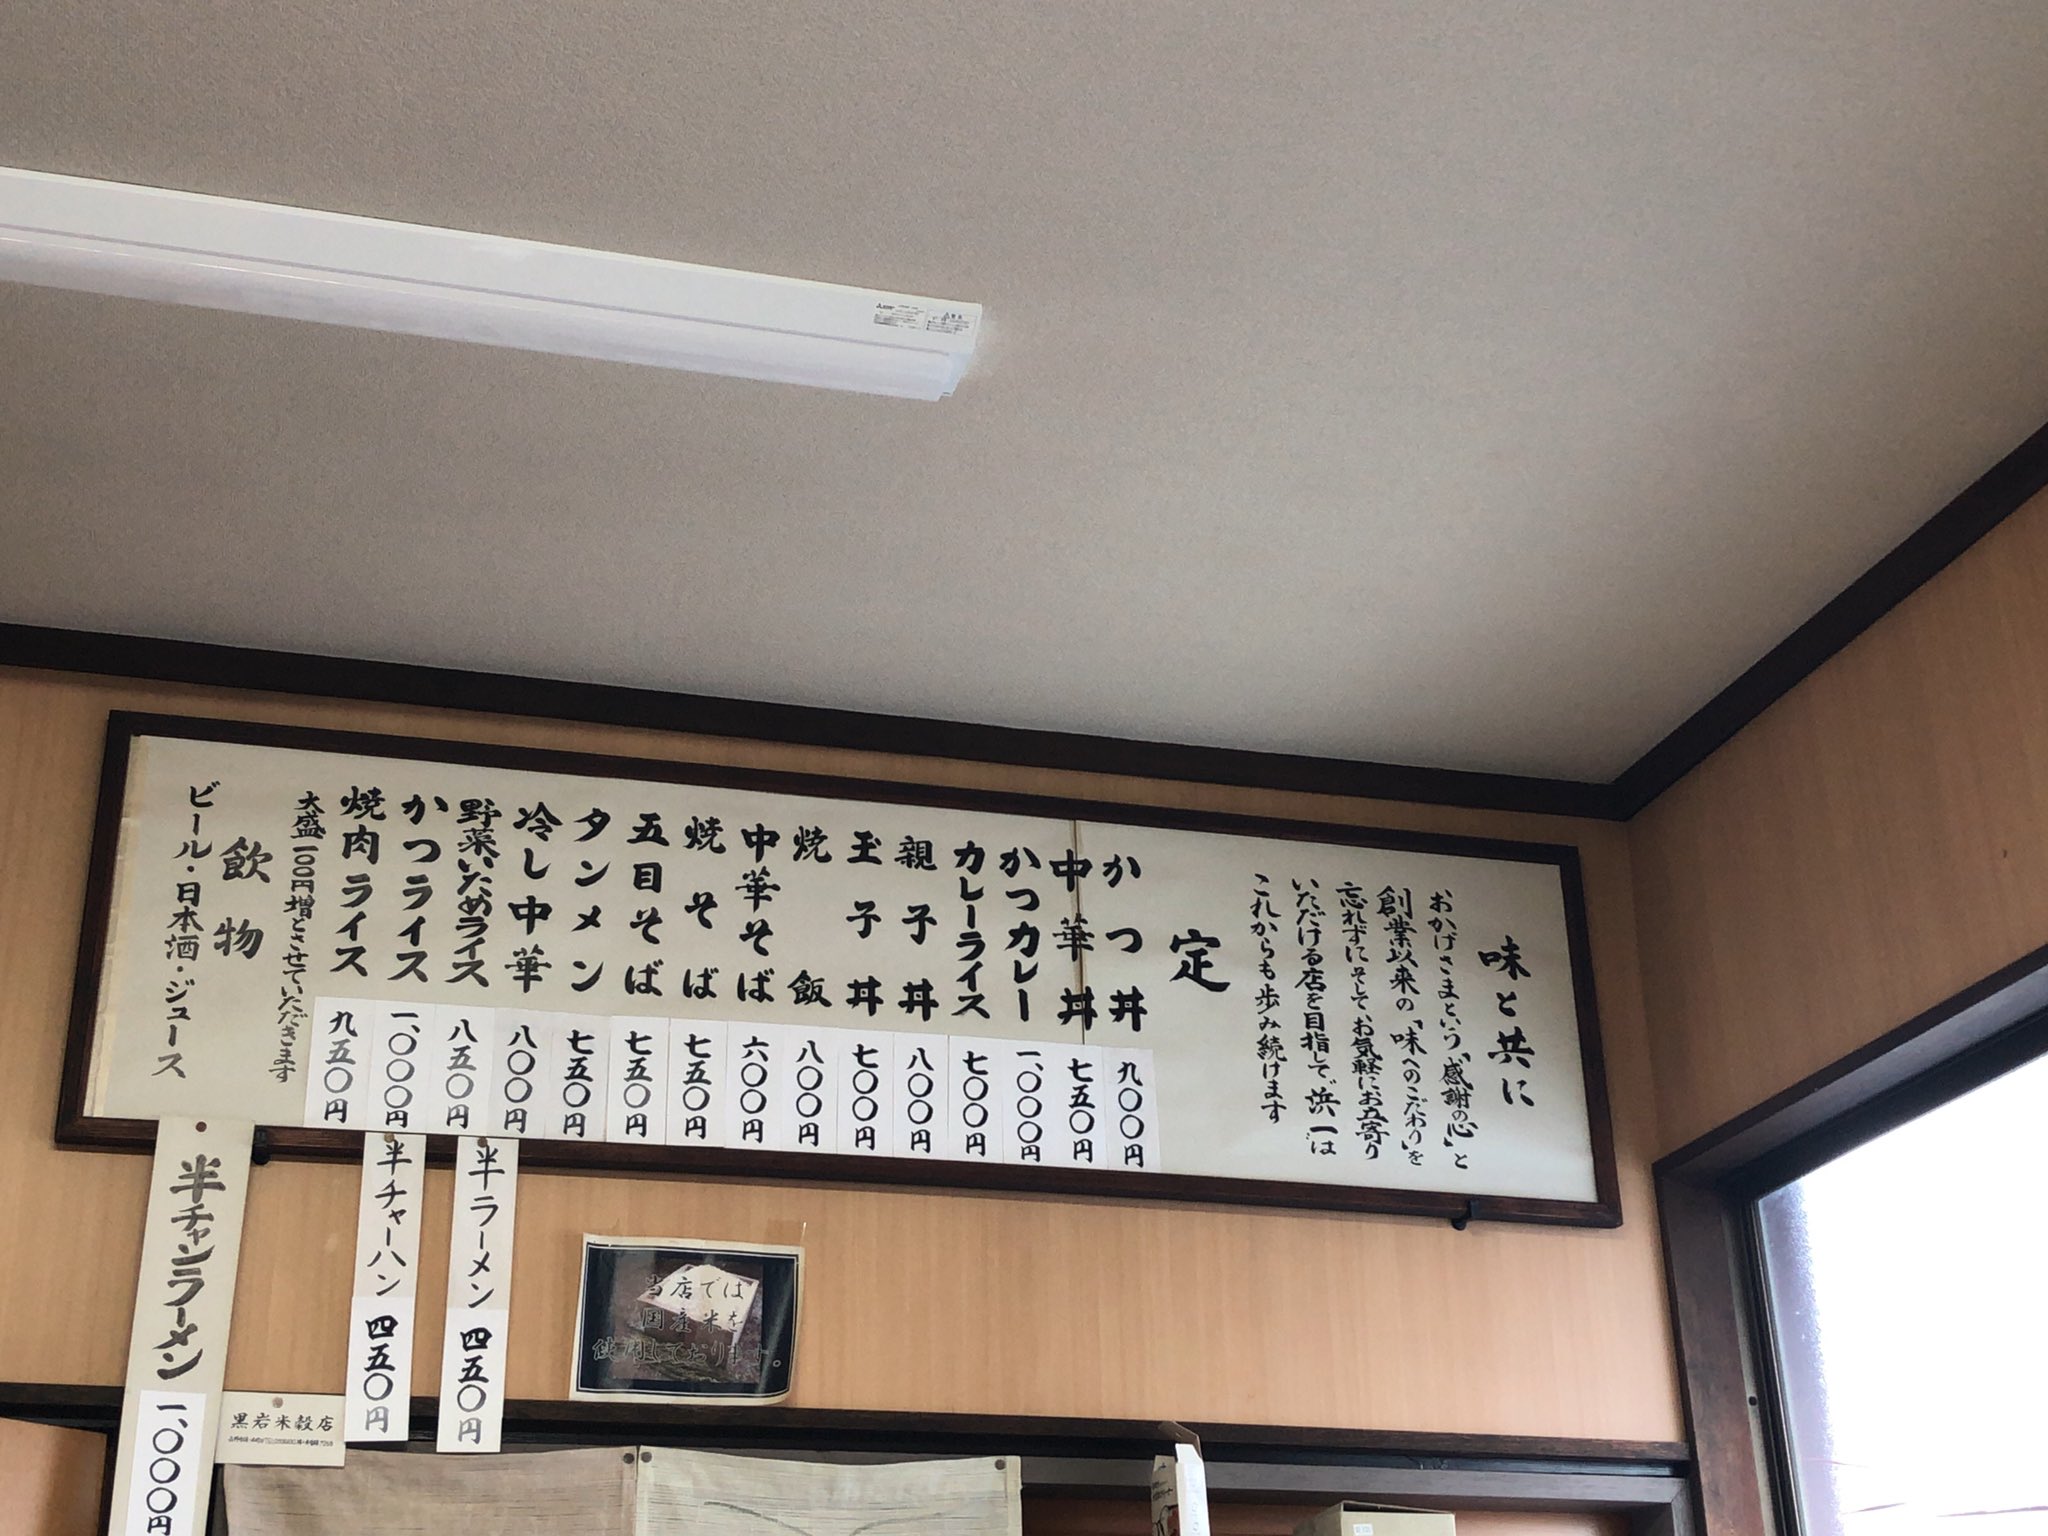 味と共に
おかげさまという「感謝の心」と
創業以来の「味へのこだわり」を
忘れずにそしてお気軽にお立寄り
いただける店を目指して〝浜一〟は
これからも歩み続けます
定
かつ丼 九〇〇円
中華丼 七五〇円
かつカレー 一、〇〇〇円
カレーライス 七〇〇円
親子丼 八〇〇円
玉子丼 七〇〇円
焼飯 八〇〇円
中華そば 六〇〇円
焼そば 七五〇円
五目そば 七五〇円
タンメン 七五〇円
冷し中華 八〇〇円
野菜いためライス 八五〇円
かつライス 一、〇〇〇円
焼肉ライス 九五〇円
大盛一〇〇円増とさせていただきます
飲物
ビール・日本酒・ジュース
半ラーメン 四五〇円
半チャーハン 四五〇円
半チャンラーメン 一、〇〇〇円
当店では
国産米を
使用しております。
黒岩米穀店